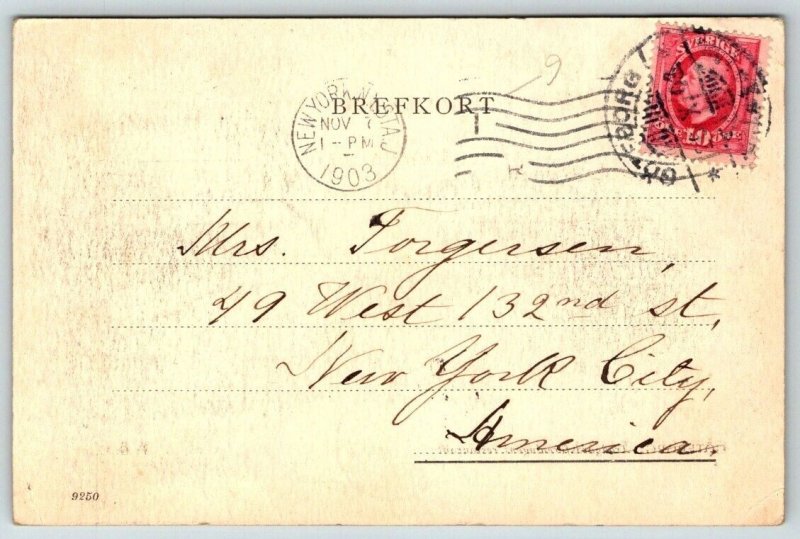 BREFKORT
NEW YORK, N.Y. STA. J
NOV 7
1-PM
1903
SVERIGE
Mrs. Torgersen,
49 West 132nd st,
New York City,
America.
9250